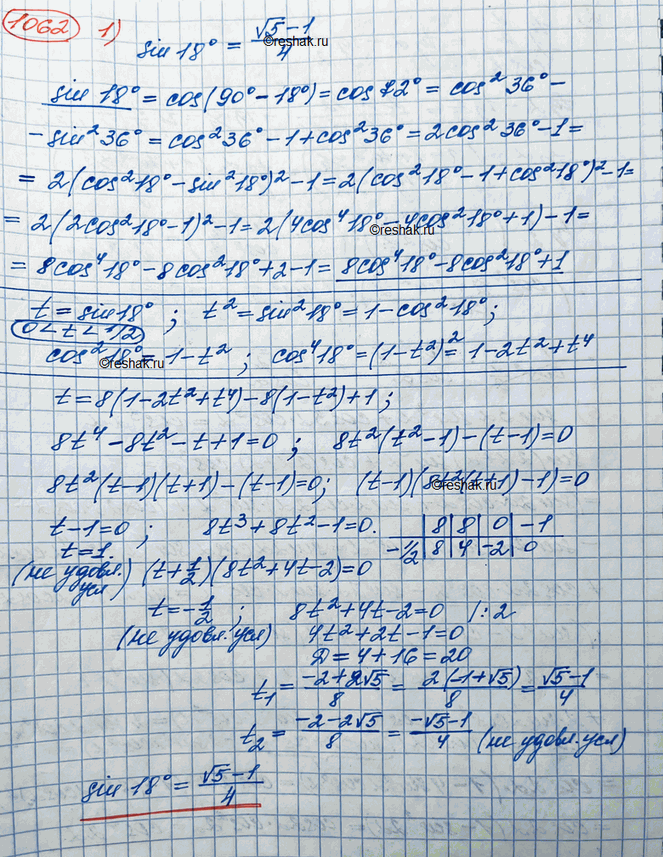 1062 1) sin 18° = (√5 − 1)/4
©reshak.ru
sin 18° = cos(90° − 18°) = cos 72° = cos² 36° −
− sin² 36° = cos² 36° − 1 + cos² 36° = 2cos² 36° − 1 =
= 2(cos² 18° − sin² 18°)² − 1 = 2(cos² 18° − 1 + cos² 18°)² − 1 =
= 2(2cos² 18° − 1)² − 1 = 2(4cos⁴ 18° − 4cos² 18° + 1) − 1 =
©reshak.ru
= 8cos⁴ 18° − 8cos² 18° + 2 − 1 = 8cos⁴ 18° − 8cos² 18° + 1
t = sin 18° ; t² = sin² 18° = 1 − cos² 18° ;
0 < t < 1/2
cos² 18° = 1 − t² ; cos⁴ 18° = (1 − t²)² = 1 − 2t² + t⁴
©reshak.ru
t = 8(1 − 2t² + t⁴) − 8(1 − t²) + 1 ;
8t⁴ − 8t² − t + 1 = 0 ; 8t²(t² − 1) − (t − 1) = 0
8t²(t − 1)(t + 1) − (t − 1) = 0 ; (t − 1)(8t²(t + 1) − 1) = 0
©reshak.ru
t − 1 = 0 ; 8t³ + 8t² − 1 = 0. | 8 | 8 | 0 | −1
t = 1. −1/2 | 8 | 4 | −2 | 0
(не удовл. усл) (t + 1/2)(8t² + 4t − 2) = 0
t = −1/2 ; 8t² + 4t − 2 = 0 /: 2
(не удовл. усл) 4t² + 2t − 1 = 0
D = 4 + 16 = 20
t₁ = (−2 + 2√5)/8 = 2(−1 + √5)/8 = (√5 − 1)/4
t₂ = (−2 − 2√5)/8 = (−√5 − 1)/4 (не удовл. усл)
sin 18° = (√5 − 1)/4